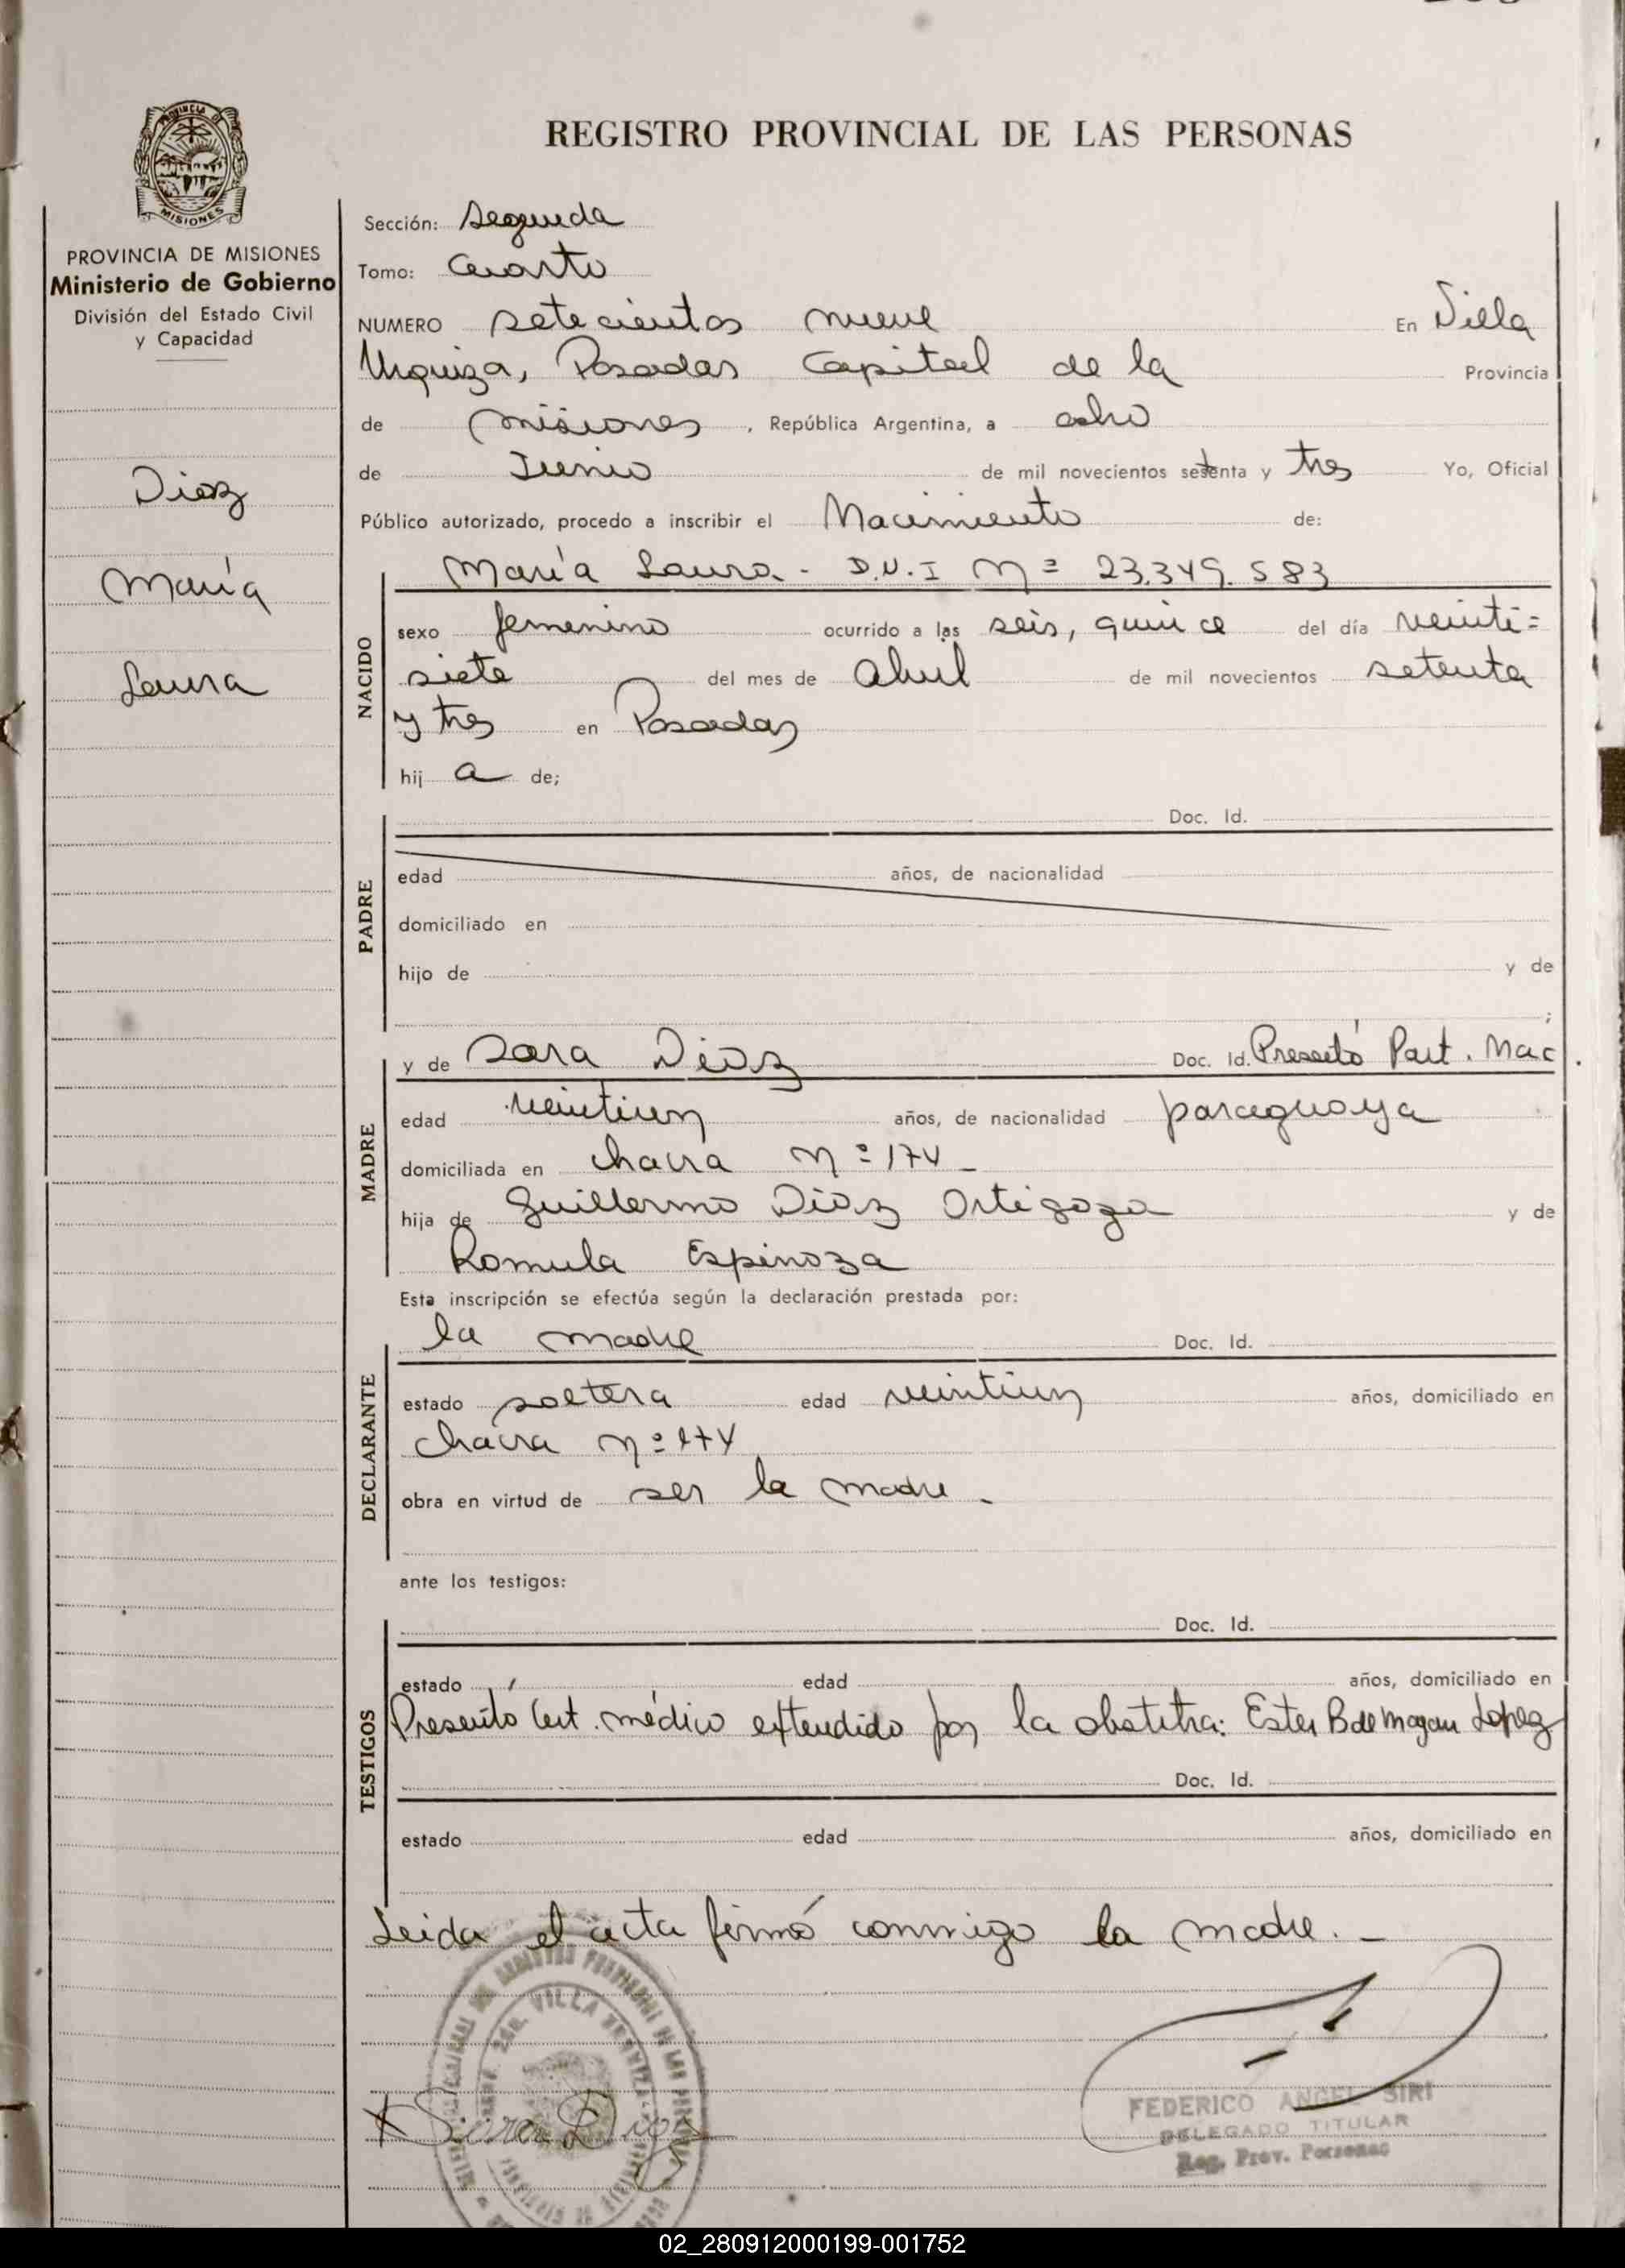 REGISTRO PROVINCIAL DE LAS PERSONAS
PROVINCIA DE
MISIONES
PROVINCIA DE MISIONES
Ministerio de Gobierno
División del Estado Civil
y Capacidad
Diaz
María
Laura
Sección: Segunda
Tomo: Cuarto
NUMERO setecientos nueve En Villa
Urquiza, Posadas Capital de la Provincia
de Misiones, República Argentina, a ocho
de Junio de mil novecientos setenta y tres Yo, Oficial
Público autorizado, procedo a inscribir el Nacimiento de:
NACIDO
María Laura - D.N.I Nº 23.349.583
sexo femenino ocurrido a las seis, quince del día veinti=
siete del mes de Abril de mil novecientos setenta
y tres en Posadas
hij a de;
PADRE
Doc. Id.
edad años, de nacionalidad
domiciliado en
hijo de y de
;
MADRE
y de Sara Diaz Doc. Id. Presentó Part. Nac.
edad veintiun años, de nacionalidad paraguaya
domiciliada en chacra Nº 174 -
hija de Guillermo Diaz Ortigoza y de
Romula Espinoza
Esta inscripción se efectúa según la declaración prestada por:
DECLARANTE
la madre Doc. Id.
estado soltera edad veintiun años, domiciliado en
chacra Nº 174
obra en virtud de ser la madre -
ante los testigos:
TESTIGOS
Doc. Id.
estado edad años, domiciliado en
Presentó Cert. médico extendido por la obstetra: Ester B de Lopez
Doc. Id.
estado edad años, domiciliado en
Leida el acta firmó conmigo la madre. -
VILLA URQUIZA
x Sara Diaz
FEDERICO ANGEL SIRI
DELEGADO TITULAR
Reg. Prov. Personas
02_280912000199-001752